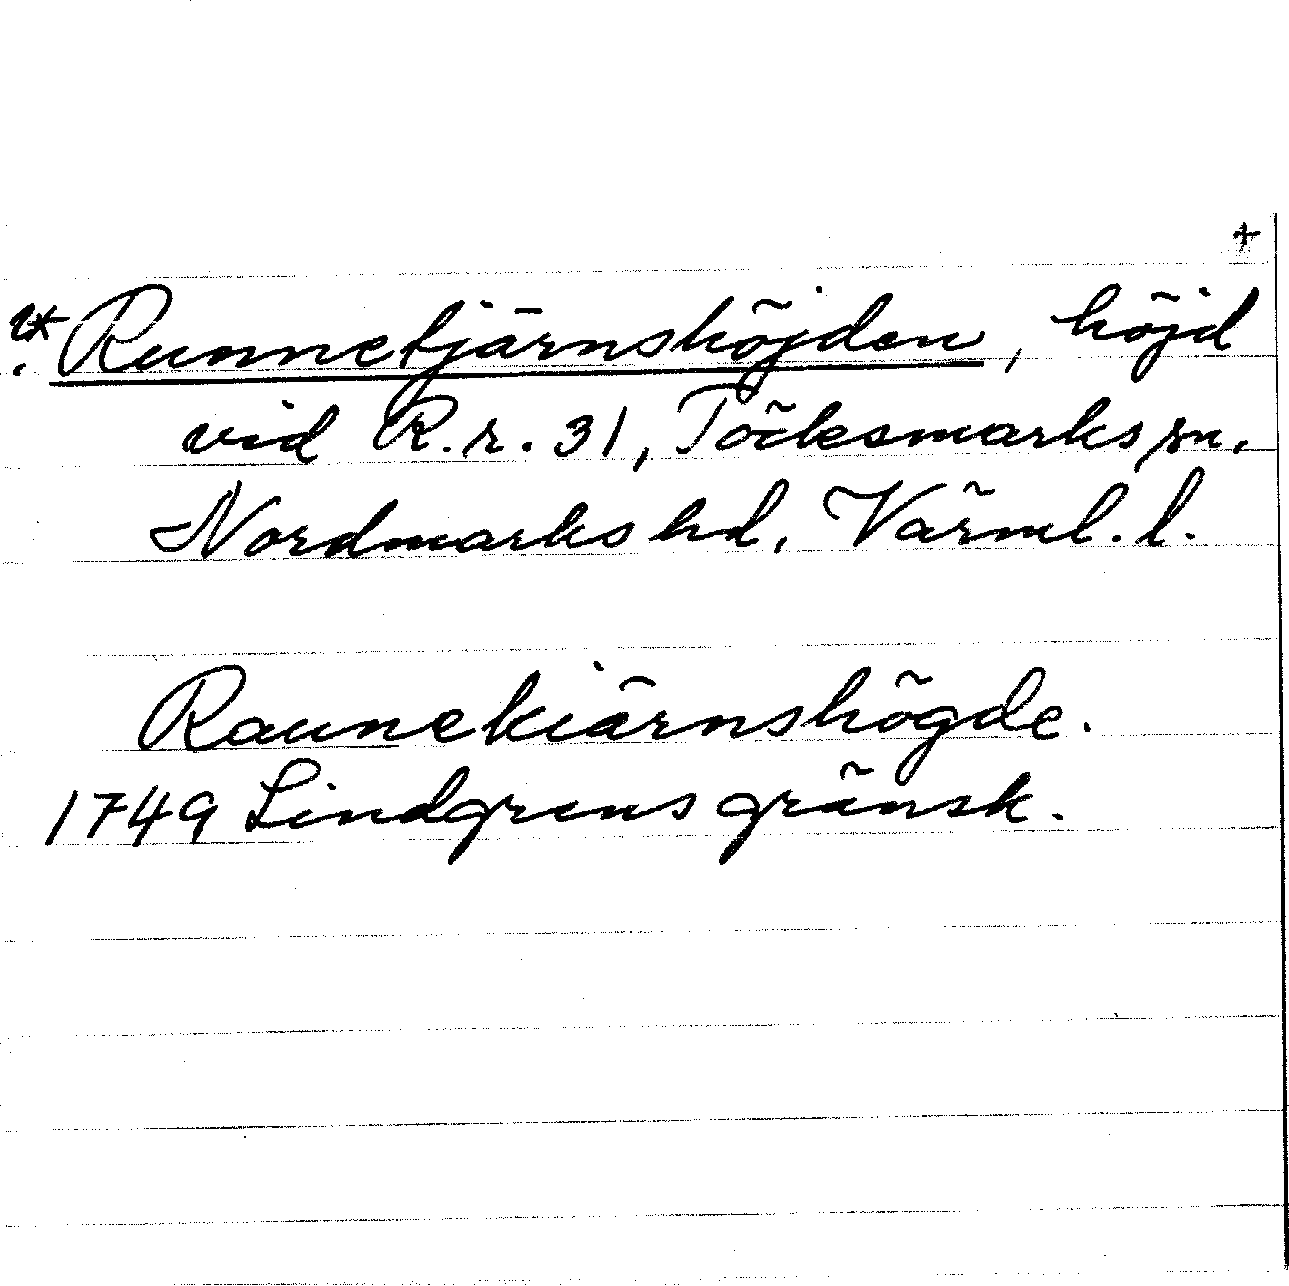 +
Runnetjärnshöjden, höjd
vid R.r. 31, Töcksmarks sn.
Nordmarks hd, Värml. l.
Raunekiärnshögde.
1749 Lindgrens gränsk.